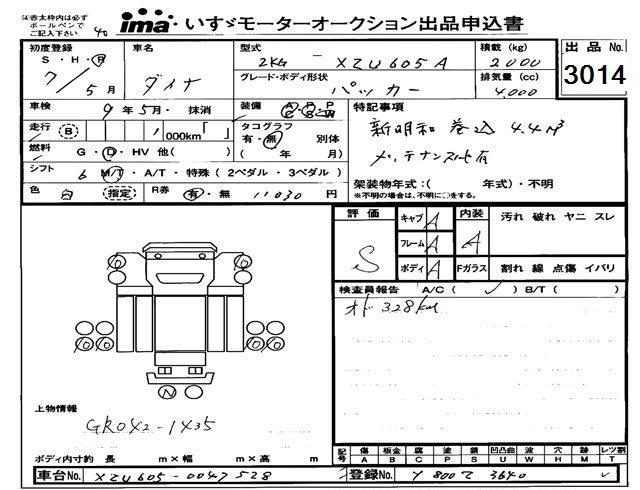 ※赤太枠内は必ず
ボールペンで
ご記入下さい 40
ima いすゞモーターオークション出品申込書
初度登録 車名 型式 2KG - XZU605A 積載 (kg) 2000 出品 No.
S・H・R 7/5月 ダイナ グレード・ボディ形状 パッカー 排気量 (cc) 4,000 3014
車検 9年5月・抹消 装備 A C・P S・P W 特記事項
走行 B ,000km「 」 タコグラフ 有・無 別体 新明和 巻込 4.4m³
燃料 G・D・HV 他( ) ( 年 月) メンテナンスS付有
シフト 6 M/T・A/T・特殊 (2ペダル・3ペダル) 架装物年式:( 年式)・不明
色 白 指定 R券 有・無 11030 円 ※不明の場合は、不明に○をする。
評価 キャブ A 内装 汚れ 破れ ヤニ スレ
S フレーム A A
ボディ A Fガラス 割れ 線 点傷 イバリ
検査員報告 A/C ( ✓ ) B/T ( )
オド 328km
N
上物情報
GR042-1435
ボディ内寸約 長 m×幅 m×高 m
記号 傷A 板金B 腐C 塗P 錆S 凹凸曲U 波W 穴H 跡M レツ割T
車台No. XZU605-0047528 登録No. 800 3640